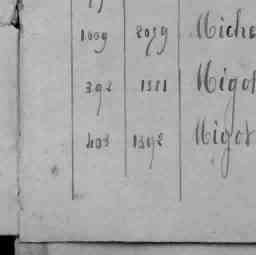 1009 2059 Miche
392 1581 Migot
403 1392 Migot